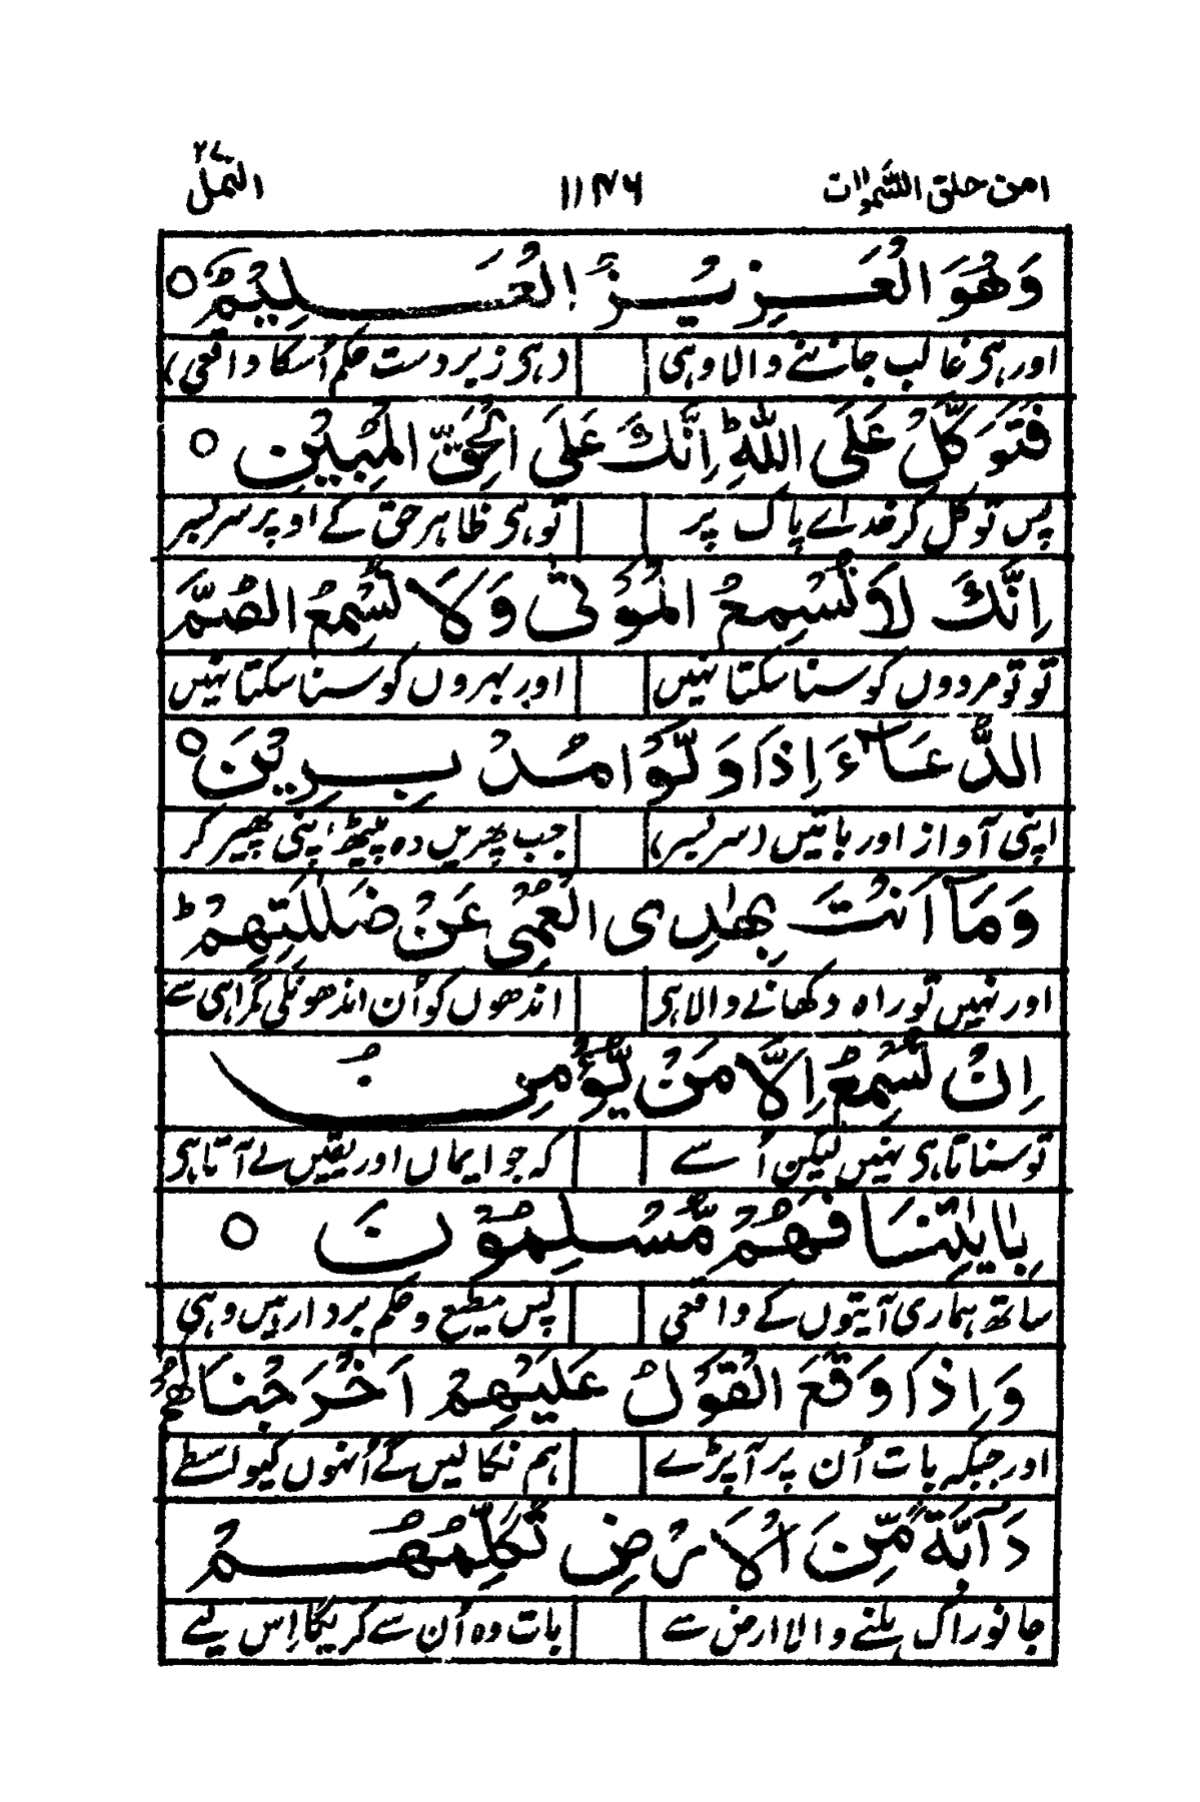 امن خلق السموات ۱۱۴۶ النمل ۲۷
وَهُوَ الْعَزِيْزُ الْعَلِيْمُ ○
اور ہی غالب جاننے والا وہی (ہی زبردست حکم اُسکا واقعی)
فَتَوَكَّلْ عَلَى اللّٰهِ ؕ اِنَّكَ عَلَى الْحَقِّ الْمُبِيْنِ ○
پس توکل کر خداے پاک پر تو ہی ظاہر حق کے اوپر سربسر
اِنَّكَ لَا تُسْمِعُ الْمَوْتٰى وَلَا تُسْمِعُ الصُّمَّ
تو تو مردوں کو سنا سکتا نہیں اور بہروں کو سنا سکتا نہیں
الدُّعَآءَ اِذَا وَلَّوْا مُدْبِرِيْنَ ○
اپنی آواز اور باتیں (سربسر) جب پھریں وہ پیٹھ اپنی پھیر کر
وَمَآ اَنْتَ بِهٰدِى الْعُمْىِ عَنْ ضَلٰلَتِهِمْ ؕ
اور نہیں تو راہ دکھانے والا ہی اندھوں کو اُن اندھونکی گمراہی سے
اِنْ تُسْمِعُ اِلَّا مَنْ يُّؤْمِنُ
تو سناتا ہی نہیں لیکن اُسے کہ جو ایماں اور یقیں لے آتا ہی
بِاٰيٰتِنَا فَهُمْ مُّسْلِمُوْنَ ○
ساتھ ہماری آیتوں کے واقعی پس مطیع و حکم بردار ہیں وہی
وَاِذَا وَقَعَ الْقَوْلُ عَلَيْهِمْ اَخْرَجْنَا لَهُمْ
اور جبکہ بات اُن پر آپڑے ہم نکالیں گے اُنہوں کیواسطے
دَآبَّةً مِّنَ الْاَرْضِ تُكَلِّمُهُمْ
جانور اک چلنے والا ارض سے بات وہ اُن سے کریگا اِس لیے